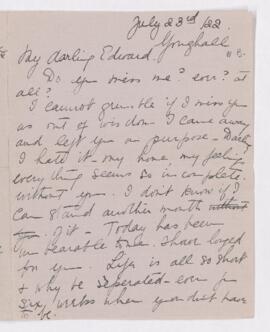 July 23rd /22.
Youghall
My darling Edward,
Do you miss me? ever? at
all?
I cannot grumble if I miss you
as out of wisdom I came away
and left you on purpose - Darling
I hate it - my home, my feelings
everything seems so incomplete
without you. I don't know if I
can stand another month without
of it - Today has been
unbearable I have longed
for you. Life is all so short
& why be seperated - even for
six weeks when you dont have
to be.